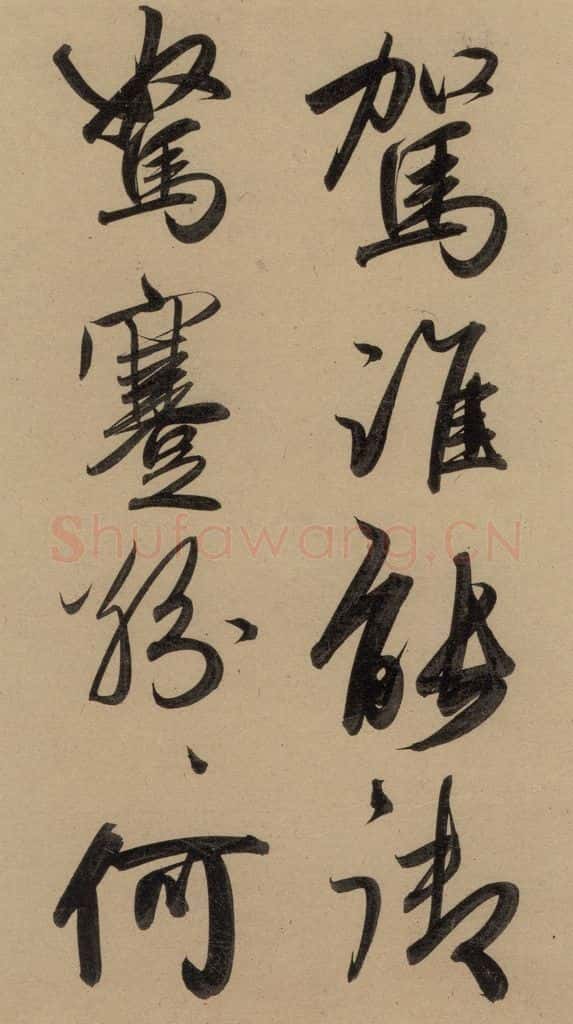 駕誰能御
駑蹇紛何
Shufawang.CN